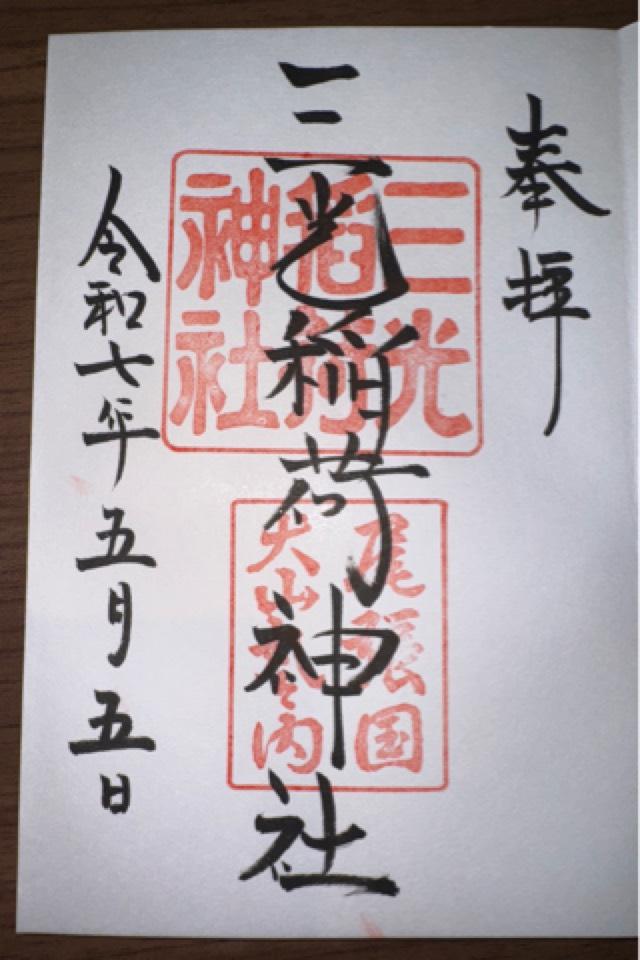 奉拝
三光稲荷神社
令和七年五月五日
三光
稲荷
神社
尾張国
犬山城内